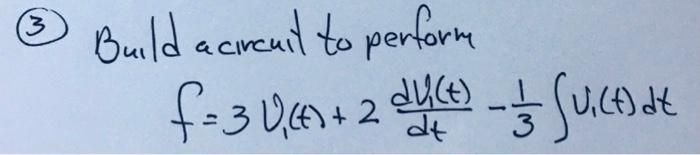 ③ Build a circuit to perform
f = 3 U₁(t) + 2 dU₁(t)/dt - 1/3 ∫ U₁(t) dt